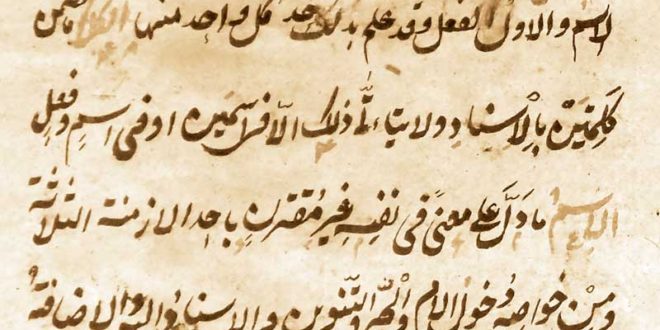 الاسم والاول الفعل وقد علم بذلك حد كل واحد منها الكلام ما تضمن
كلمتين بالاسناد ولا يتاتى ذلك الا في اسمين او في اسم وفعل
الاسم ما دل على معنى في نفسه غير مقترن باحد الازمنة الثلاثة
ومن خواصه دخول اللام والجر والتنوين والاسناد اليه والاضافة